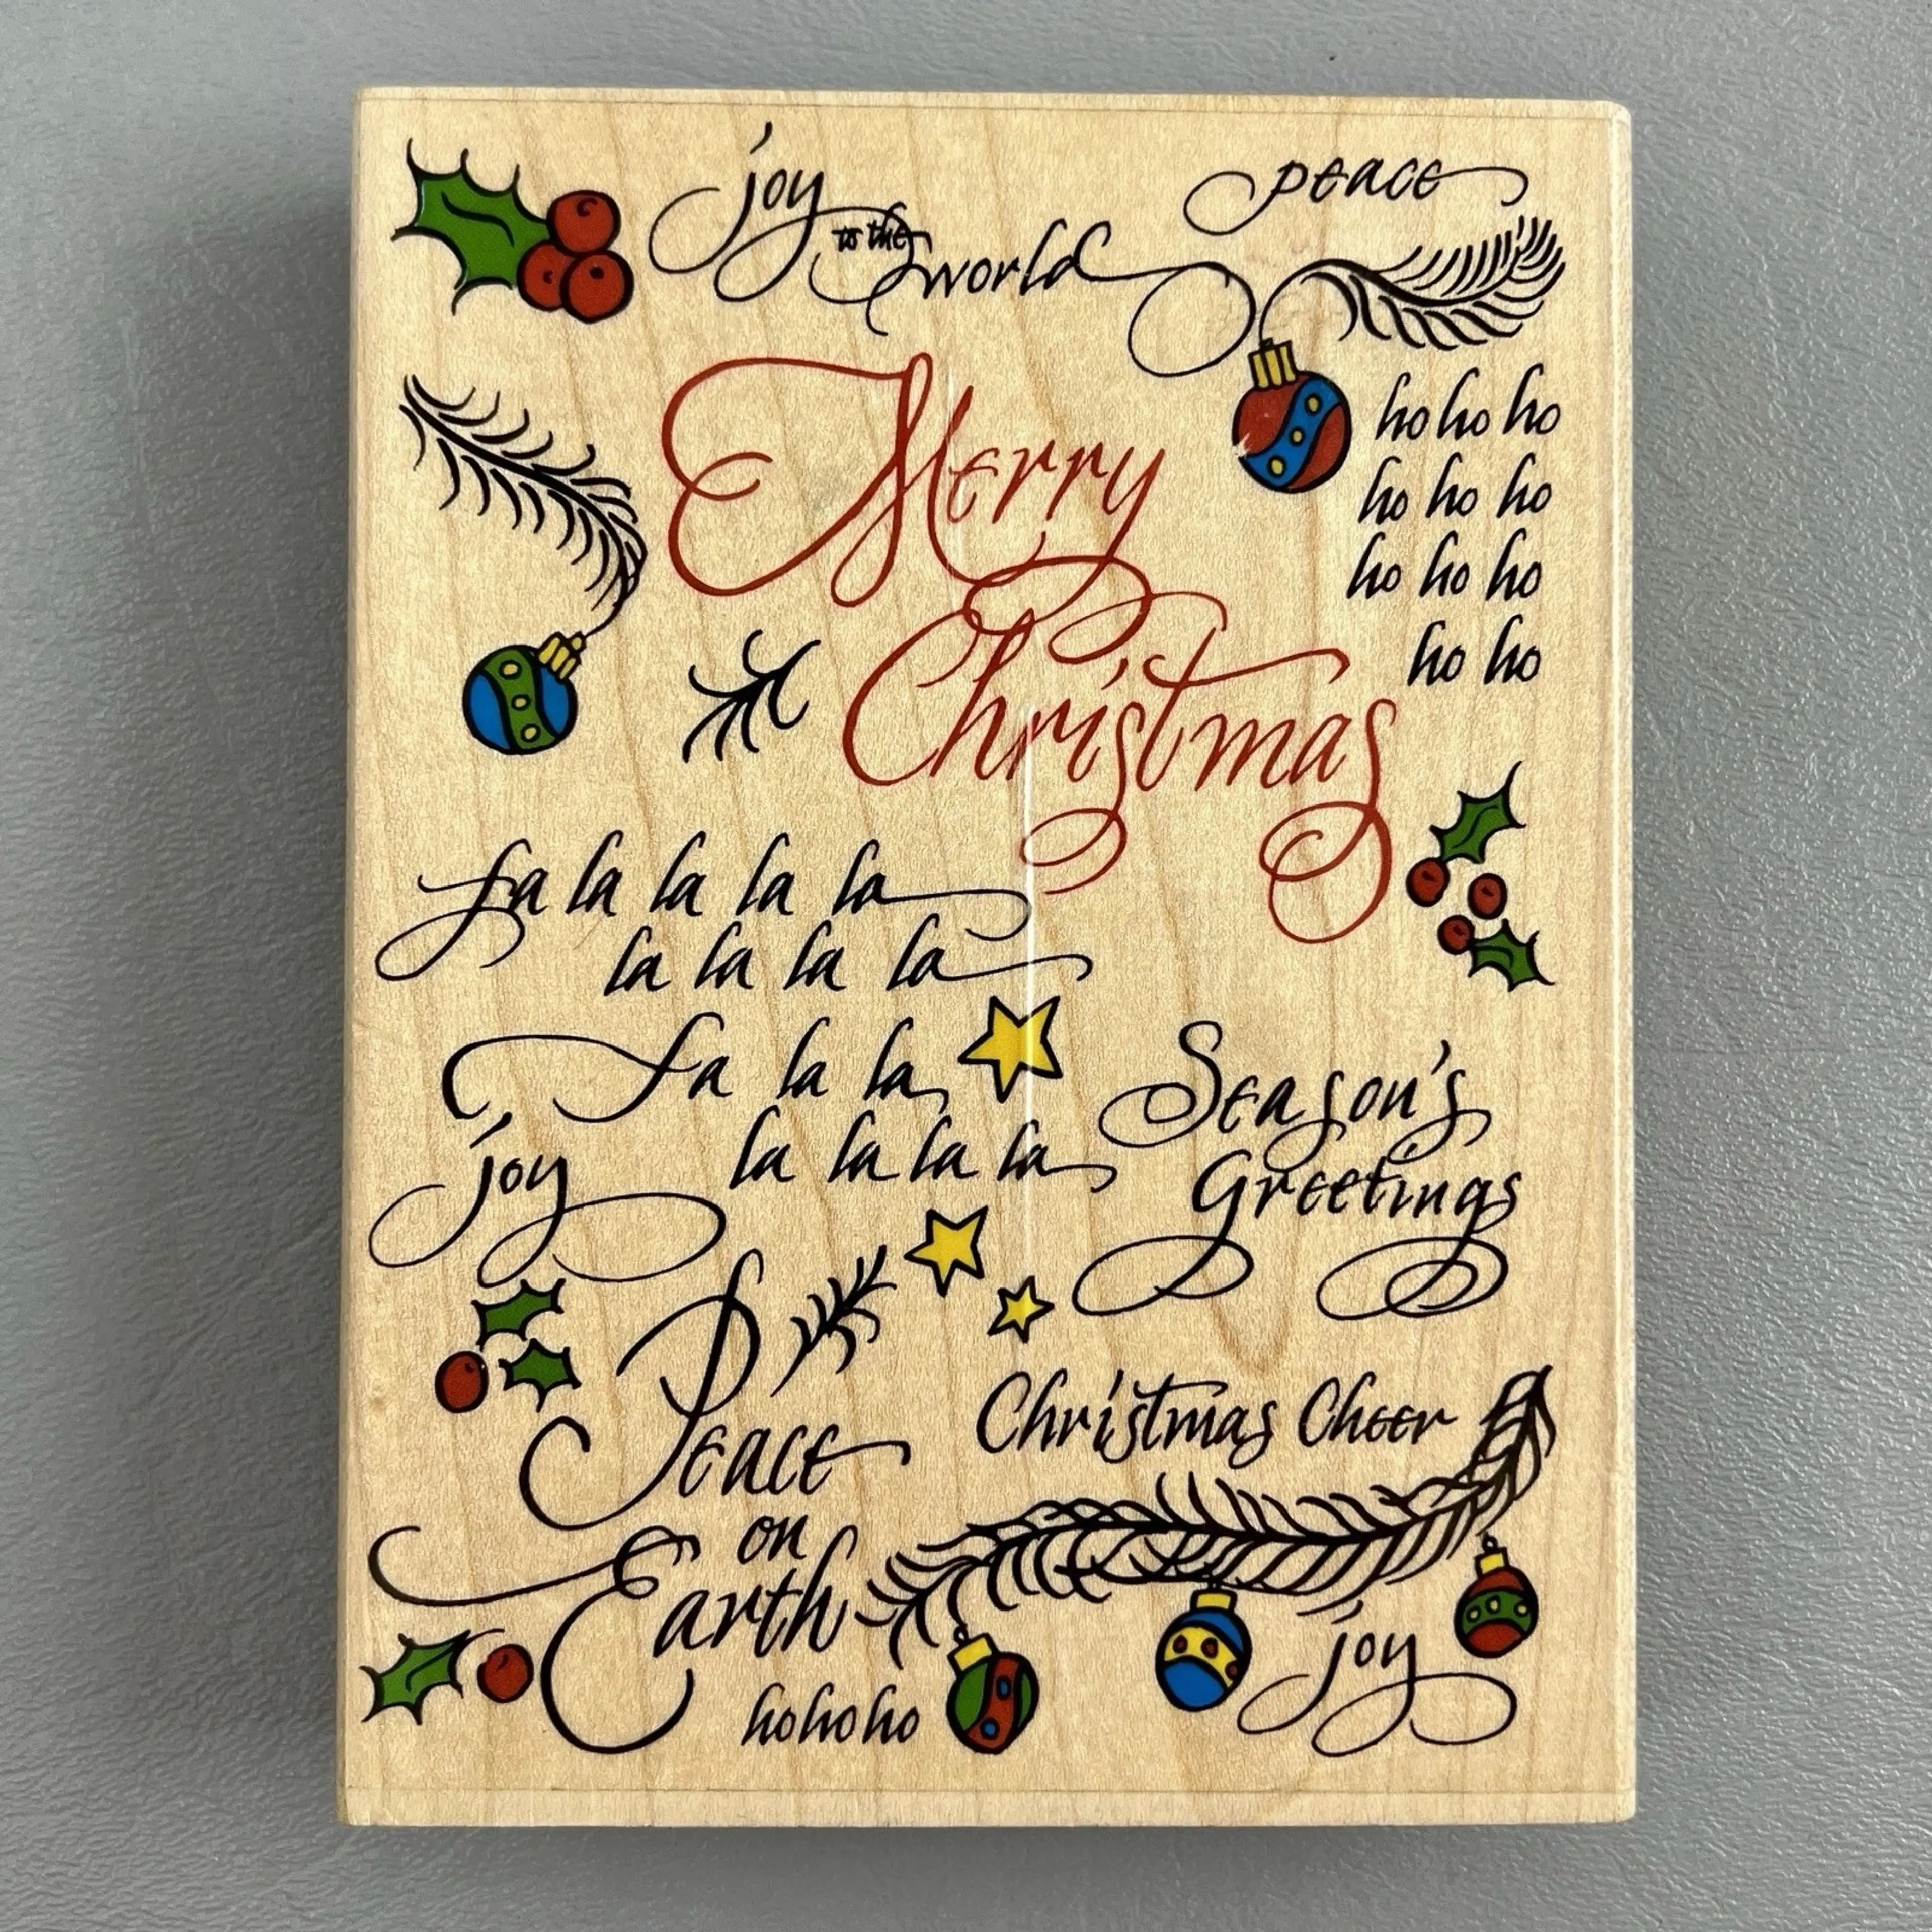 joy
to the
world
peace
Merry
Christmas
ho ho ho
ho ho ho
ho ho ho
ho ho
fa la la la la
la la la la
fa la la
la la la la
joy
Season's
Greetings
Peace
on
Earth
Christmas Cheer
ho ho ho
joy